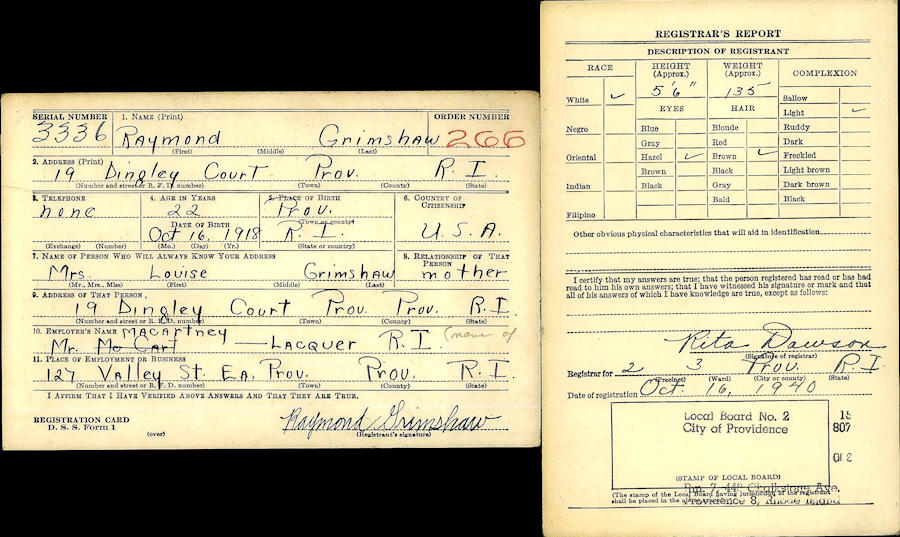 SERIAL NUMBER 1. NAME (Print) ORDER NUMBER
3336 Raymond Grimshaw 266
(First) (Middle) (Last)
2. ADDRESS (Print)
19 Dingley Court Prov. R. I.
(Number and street or R. F. D. number) (Town) (County) (State)
3. TELEPHONE 4. AGE IN YEARS 5. PLACE OF BIRTH 6. COUNTRY OF CITIZENSHIP
none 22 Prov.
(Town or county)
DATE OF BIRTH
Oct 16, 1918 R. I. U. S. A.
(Exchange) (Number) (Mo.) (Day) (Yr.) (State or country)
7. NAME OF PERSON WHO WILL ALWAYS KNOW YOUR ADDRESS 8. RELATIONSHIP OF THAT PERSON
Mrs. Louise Grimshaw mother
(Mr., Mrs., Miss) (First) (Last)
9. ADDRESS OF THAT PERSON
19 Dingley Court Prov. Prov. R. I.
(Number and street or R. F. D. number) (Town) (County) (State)
10. EMPLOYER'S NAME MACARTNEY
Mr. Mc Cart — LACQUER R. I. (name of
11. PLACE OF EMPLOYMENT OR BUSINESS
127 Valley St. Ea. Prov. Prov. R. I.
(Number and street or R. F. D. number) (Town) (County) (State)
I AFFIRM THAT I HAVE VERIFIED ABOVE ANSWERS AND THAT THEY ARE TRUE.
REGISTRATION CARD
D. S. S. Form 1 Raymond Grimshaw
(over) (Registrant's signature)
REGISTRAR'S REPORT
DESCRIPTION OF REGISTRANT
RACE HEIGHT (Approx.) WEIGHT (Approx.) COMPLEXION
White ✓ 5' 6" 135 Sallow
EYES HAIR Light ✓
Negro Blue Blonde Ruddy
Gray Red Dark
Oriental Hazel ✓ Brown ✓ Freckled
Brown Black Light brown
Indian Black Gray Dark brown
Bald Black
Filipino
Other obvious physical characteristics that will aid in identification
I certify that my answers are true; that the person registered has read or has had
read to him his own answers; that I have witnessed his signature or mark and that
all of his answers of which I have knowledge are true, except as follows:
Rita Dawson
(Signature of registrar)
Registrar for 2 3 Prov. R. I.
(Precinct) (Ward) (City or county) (State)
Date of registration Oct. 16, 1940
Local Board No. 2 15
City of Providence 807
(STAMP OF LOCAL BOARD)
Rm. 7, 449 Chalkstone Ave.
(The stamp of the Local Board having jurisdiction of the registrant
shall be placed in the above space.)
Providence 8, Rhode Island